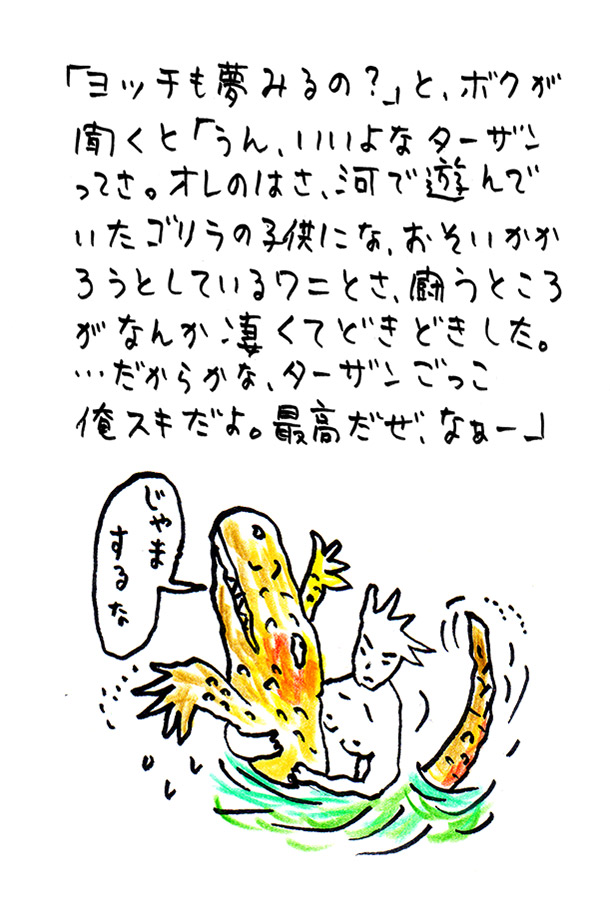 「ヨッチも夢みるの?」と、ボクが
聞くと「うん、いいよなターザン
ってさ。オレのはさ、河で遊んで
いたゴリラの子供にな、おそいかか
ろうとしているワニとさ、闘うところ
がなんか凄くてどきどきした。
…だからかな、ターザンごっこ
俺スキだよ。最高だぜ、なぁー」
じゃま
するな